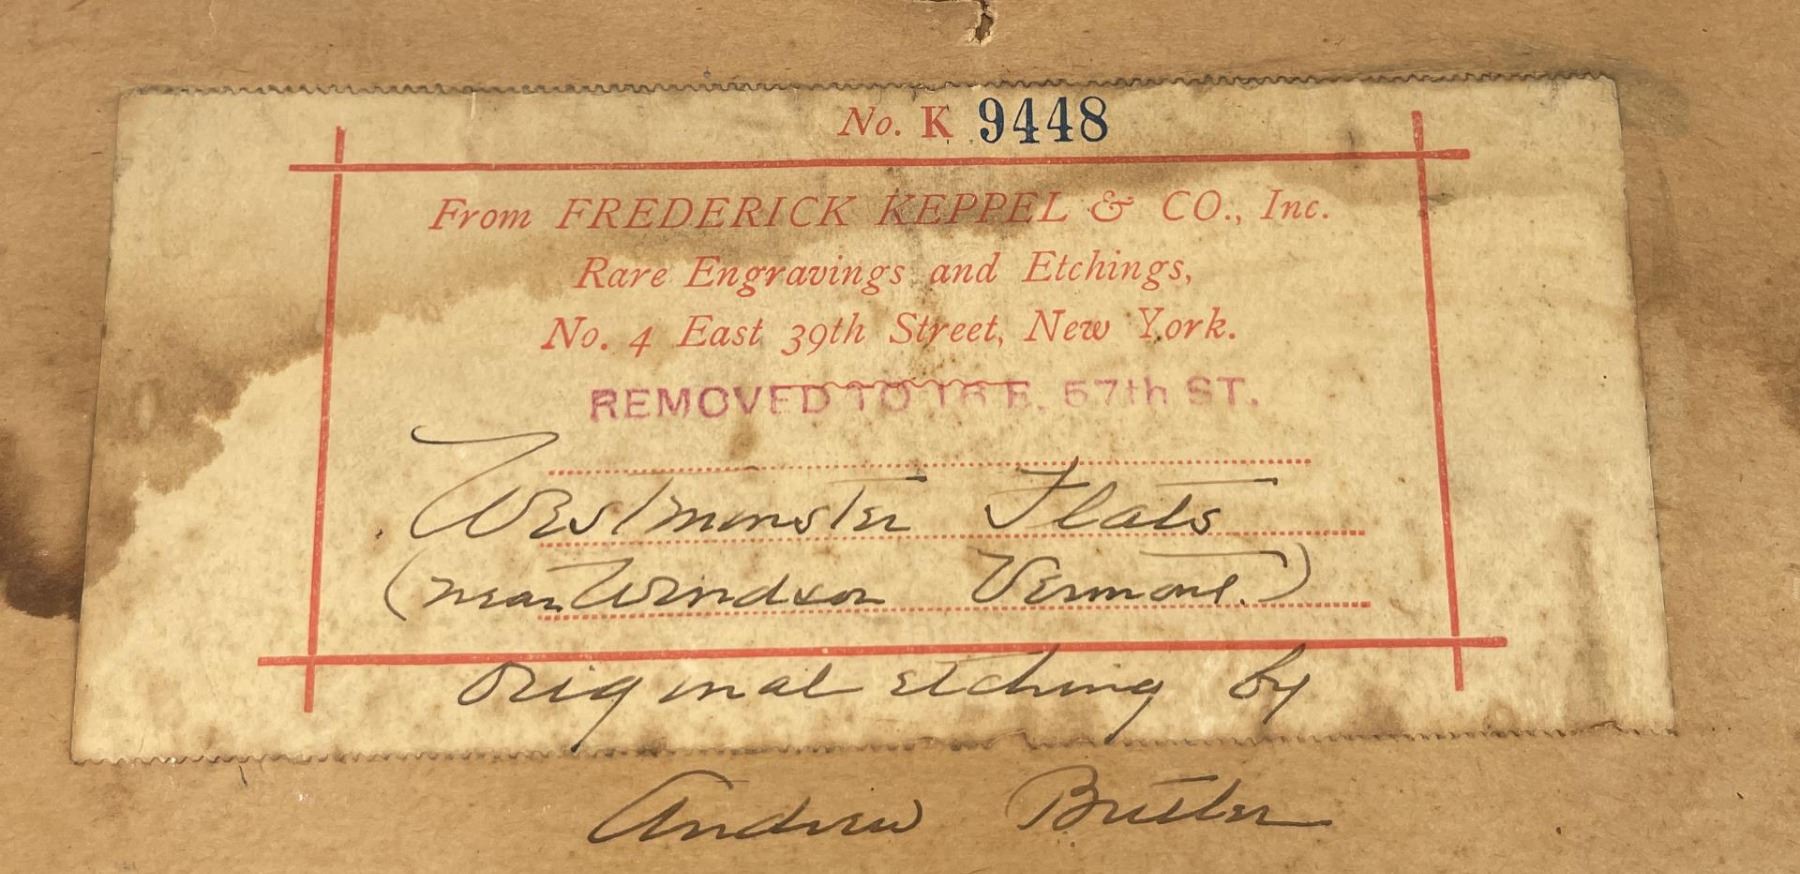 No. K 9448
From FREDERICK KEPPEL & CO., Inc.
Rare Engravings and Etchings,
No. 4 East 39th Street, New York.
REMOVED TO 16 E. 57th ST.
Westminster Flats
(near Windsor Vermont.)
Original etching by
Andrew Butler